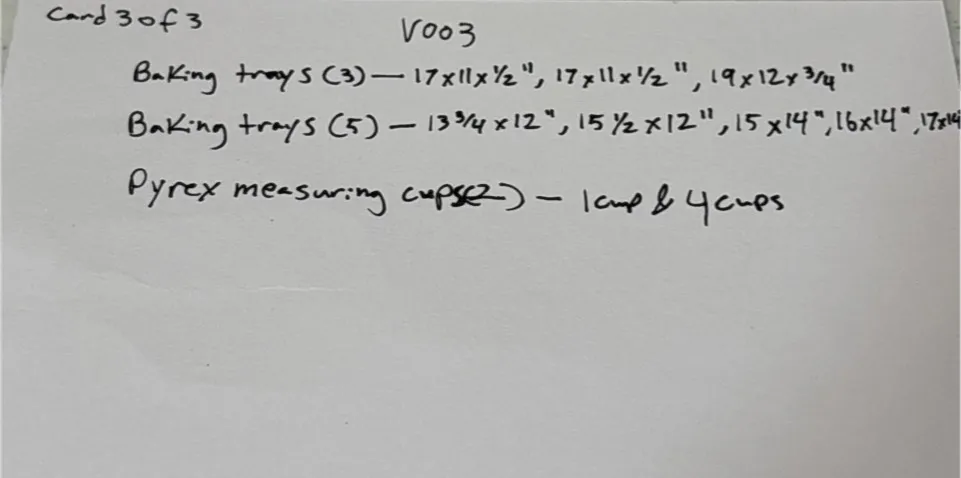 Card 3 of 3
V003
Baking trays (3) — 17x11x1/2", 17x11x1/2", 19x12x3/4"
Baking trays (5) — 13 3/4 x 12", 15 1/2 x 12", 15 x 14", 16x14", 17x14
Pyrex measuring cups(2) — 1 cup & 4 cups